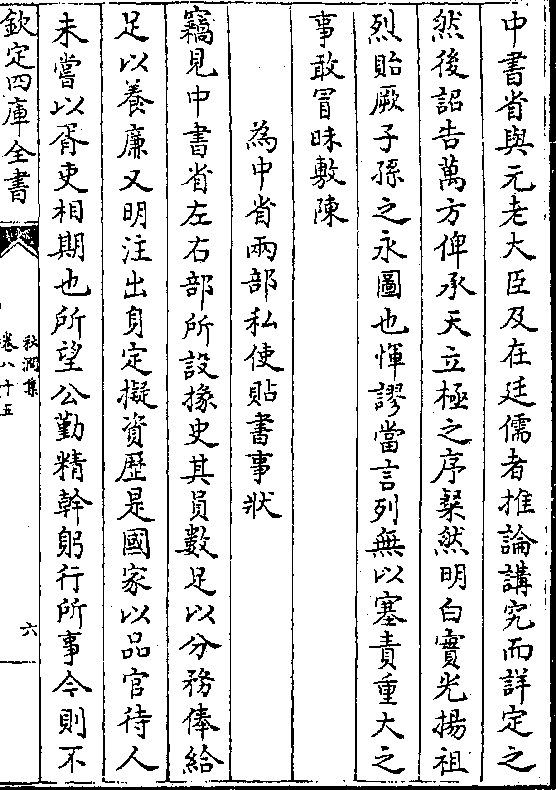 中書省與元老大臣及在廷儒者推論講究而詳定之
然後詔告萬方俾承天立極之序粲然明白實光揚祖
烈貽厥子孫之永圖也惲謬當言列無以塞責重大之
事敢冒昧敷陳
為中省兩部私使貼書事狀
竊見中書省左右部所設掾史其員數足以分務俸給
足以養廉又明注出身定擬資歴是國家以品官待人
未嘗以胥吏相期也所望公勤精幹躬行所事今則不
欽定四庫全書
秋澗集
卷八十五
六